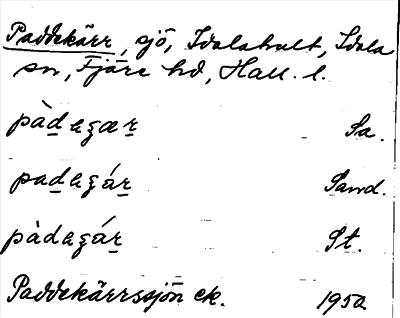 Paddekärr, sjö, Idalahult, Idala
sn, Fjäre hd, Hall. l.
pàdaʒær Sa.
padaʒár Sand.
pàdaʒár St.
Paddekärrssjön ek. 1950